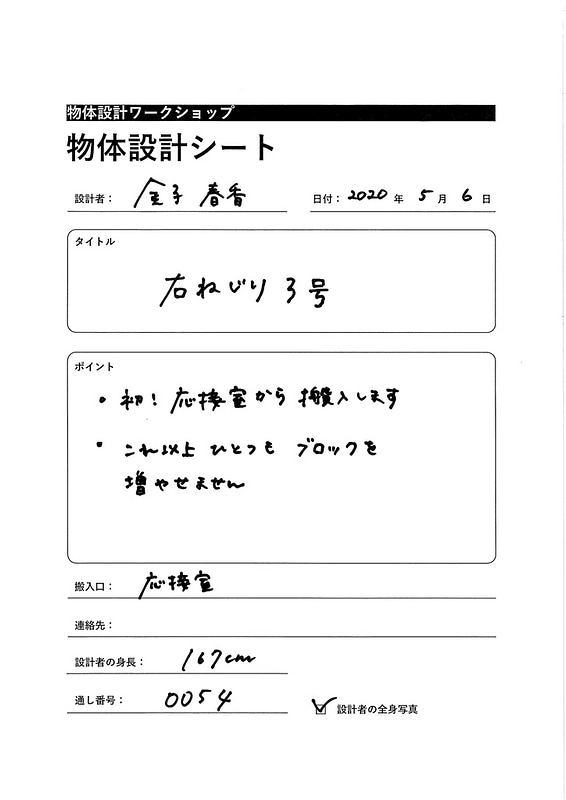 物体設計ワークショップ
物体設計シート
設計者： 金子 春香 日付： 2020 年 5 月 6 日
タイトル
右ねじり 3号
ポイント
・ 初！ 応接室から 搬入します
・ これ以上 ひとつも ブロックを
増やせません
搬入口： 応接室
連絡先：
設計者の身長： 167cm
通し番号： 0054 ☑ 設計者の全身写真